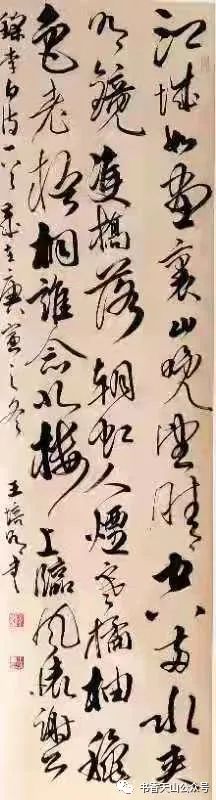 江城如畫裏山晚望晴空兩水夾
明鏡雙橋落朝虹人煙寒橘柚穐
色老梧桐誰念北樓上臨風懷謝公
錄李白詩一首歲在庚寅之冬 王培明書
书香天山公众号